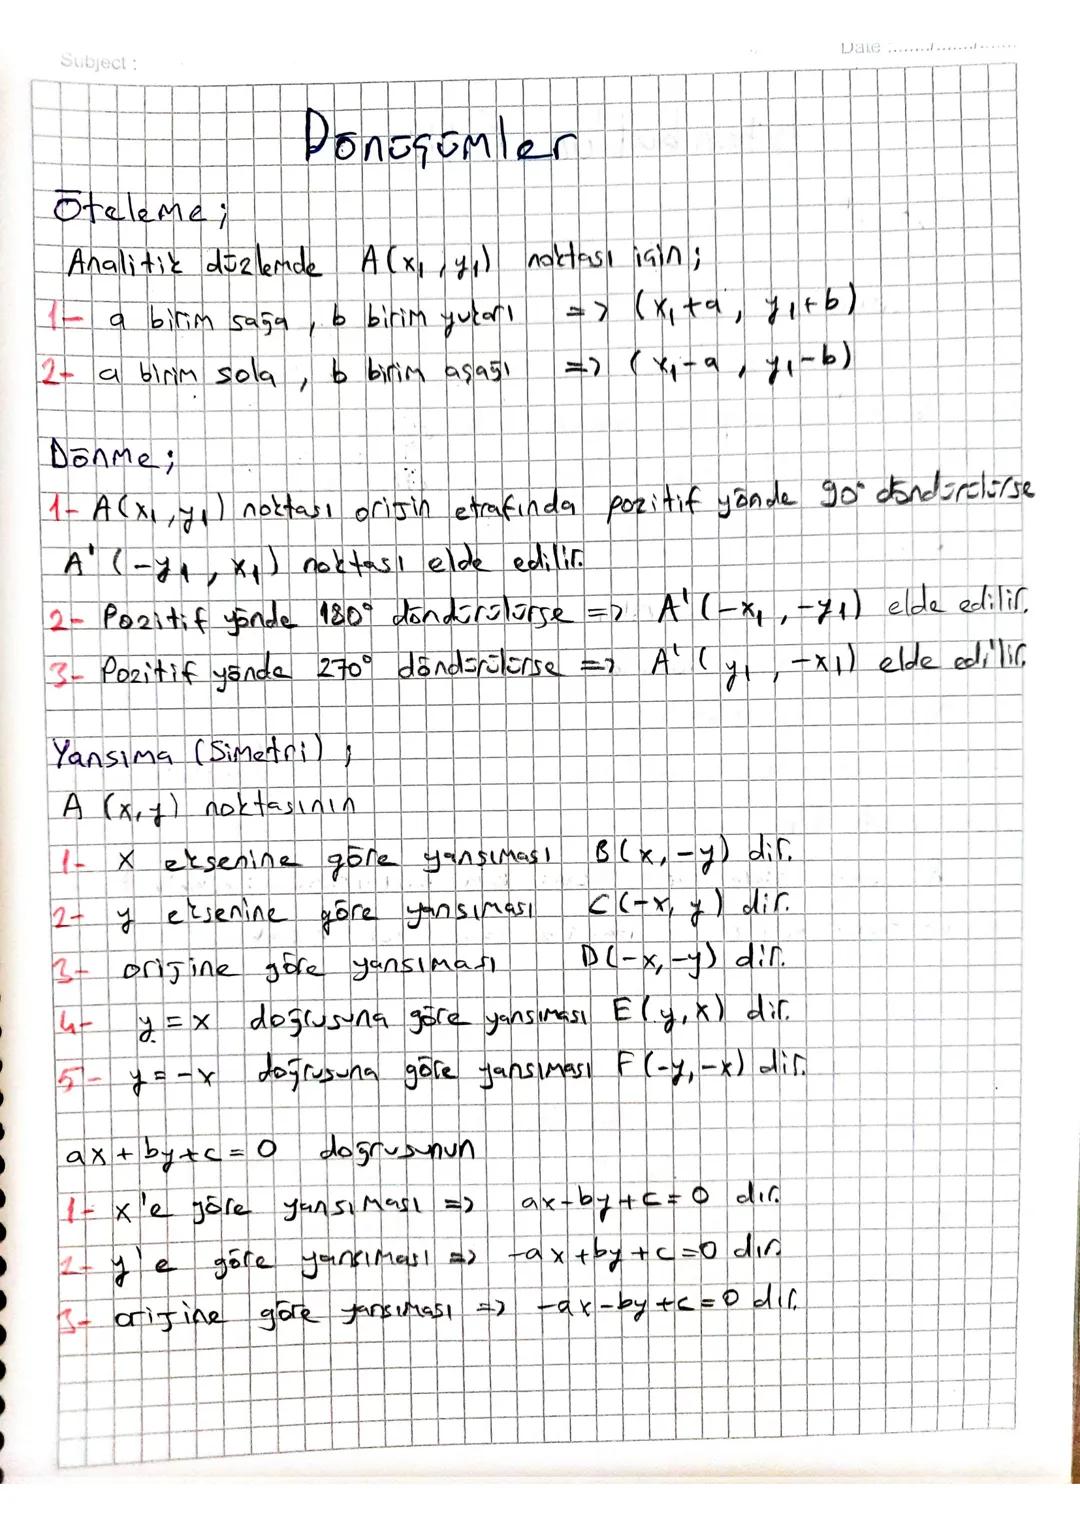 Subject :
Date :......./......../.......
Dönüşümler
Öteleme ;
Analitik düzlemde A(x₁ , y₁) noktası için ;
1- a birim sağa , b birim yukarı => (x₁+a , y₁+b)
2- a birim sola , b birim aşağı => (x₁-a , y₁-b)
Dönme ;
1- A(x₁ , y₁) noktası orijin etrafında pozitif yönde 90° döndürülürse
A' (-y₁ , x₁) noktası elde edilir.
2- Pozitif yönde 180° döndürülürse => A' (-x₁ , -y₁) elde edilir.
3- Pozitif yönde 270° döndürülürse => A' ( y₁ , -x₁) elde edilir.
Yansıma (Simetri) ;
A (x,y) noktasının
1- x eksenine göre yansıması B(x, -y) dir.
2- y eksenine göre yansıması C(-x, y) dir.
3- orijine göre yansıması D(-x,-y) dir.
4- y = x doğrusuna göre yansıması E(y,x) dir.
5- y = -x doğrusuna göre yansıması F(-y,-x) dir.
ax + by + c = 0 doğrusunun
1- x'e göre yansıması => ax-by+c=0 dır.
2- y'e göre yansıması => -ax+by+c=0 dır
3- orijine göre yansıması => -ax-by+c=0 dır.